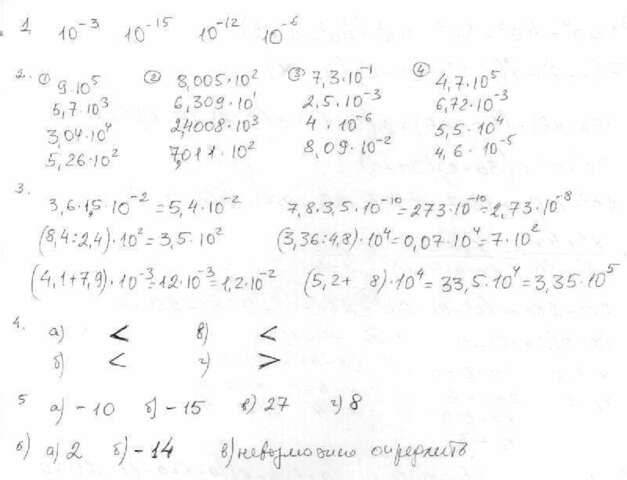 1. 10⁻³ 10⁻¹⁵ 10⁻¹² 10⁻⁶
2. ① 9·10⁵ ② 8,005·10² ③ 7,3·10⁻¹ ④ 4,7·10⁵
5,7·10³ 6,309·10¹ 2,5·10⁻³ 6,72·10⁻³
3,04·10⁴ 2,4008·10³ 4·10⁻⁶ 5,5·10⁴
5,26·10² 7,011·10² 8,09·10⁻² 4,6·10⁻⁵
3.
3,6·1,5·10⁻²=5,4·10⁻² 7,8·3,5·10⁻¹⁰=273·10⁻¹⁰=2,73·10⁻⁸
(8,4:2,4)·10²=3,5·10² (3,36:4,8)·10⁴=0,07·10⁴=7·10²
(4,1+7,9)·10⁻³=12·10⁻³=1,2·10⁻² (5,2+ 8)·10⁴=33,5·10⁴=3,35·10⁵
4. а) < в) <
б) < г) >
5 а) -10 б) -15 в) 27 г) 8
6) а) 2 б) -14 в) невозможно определить.